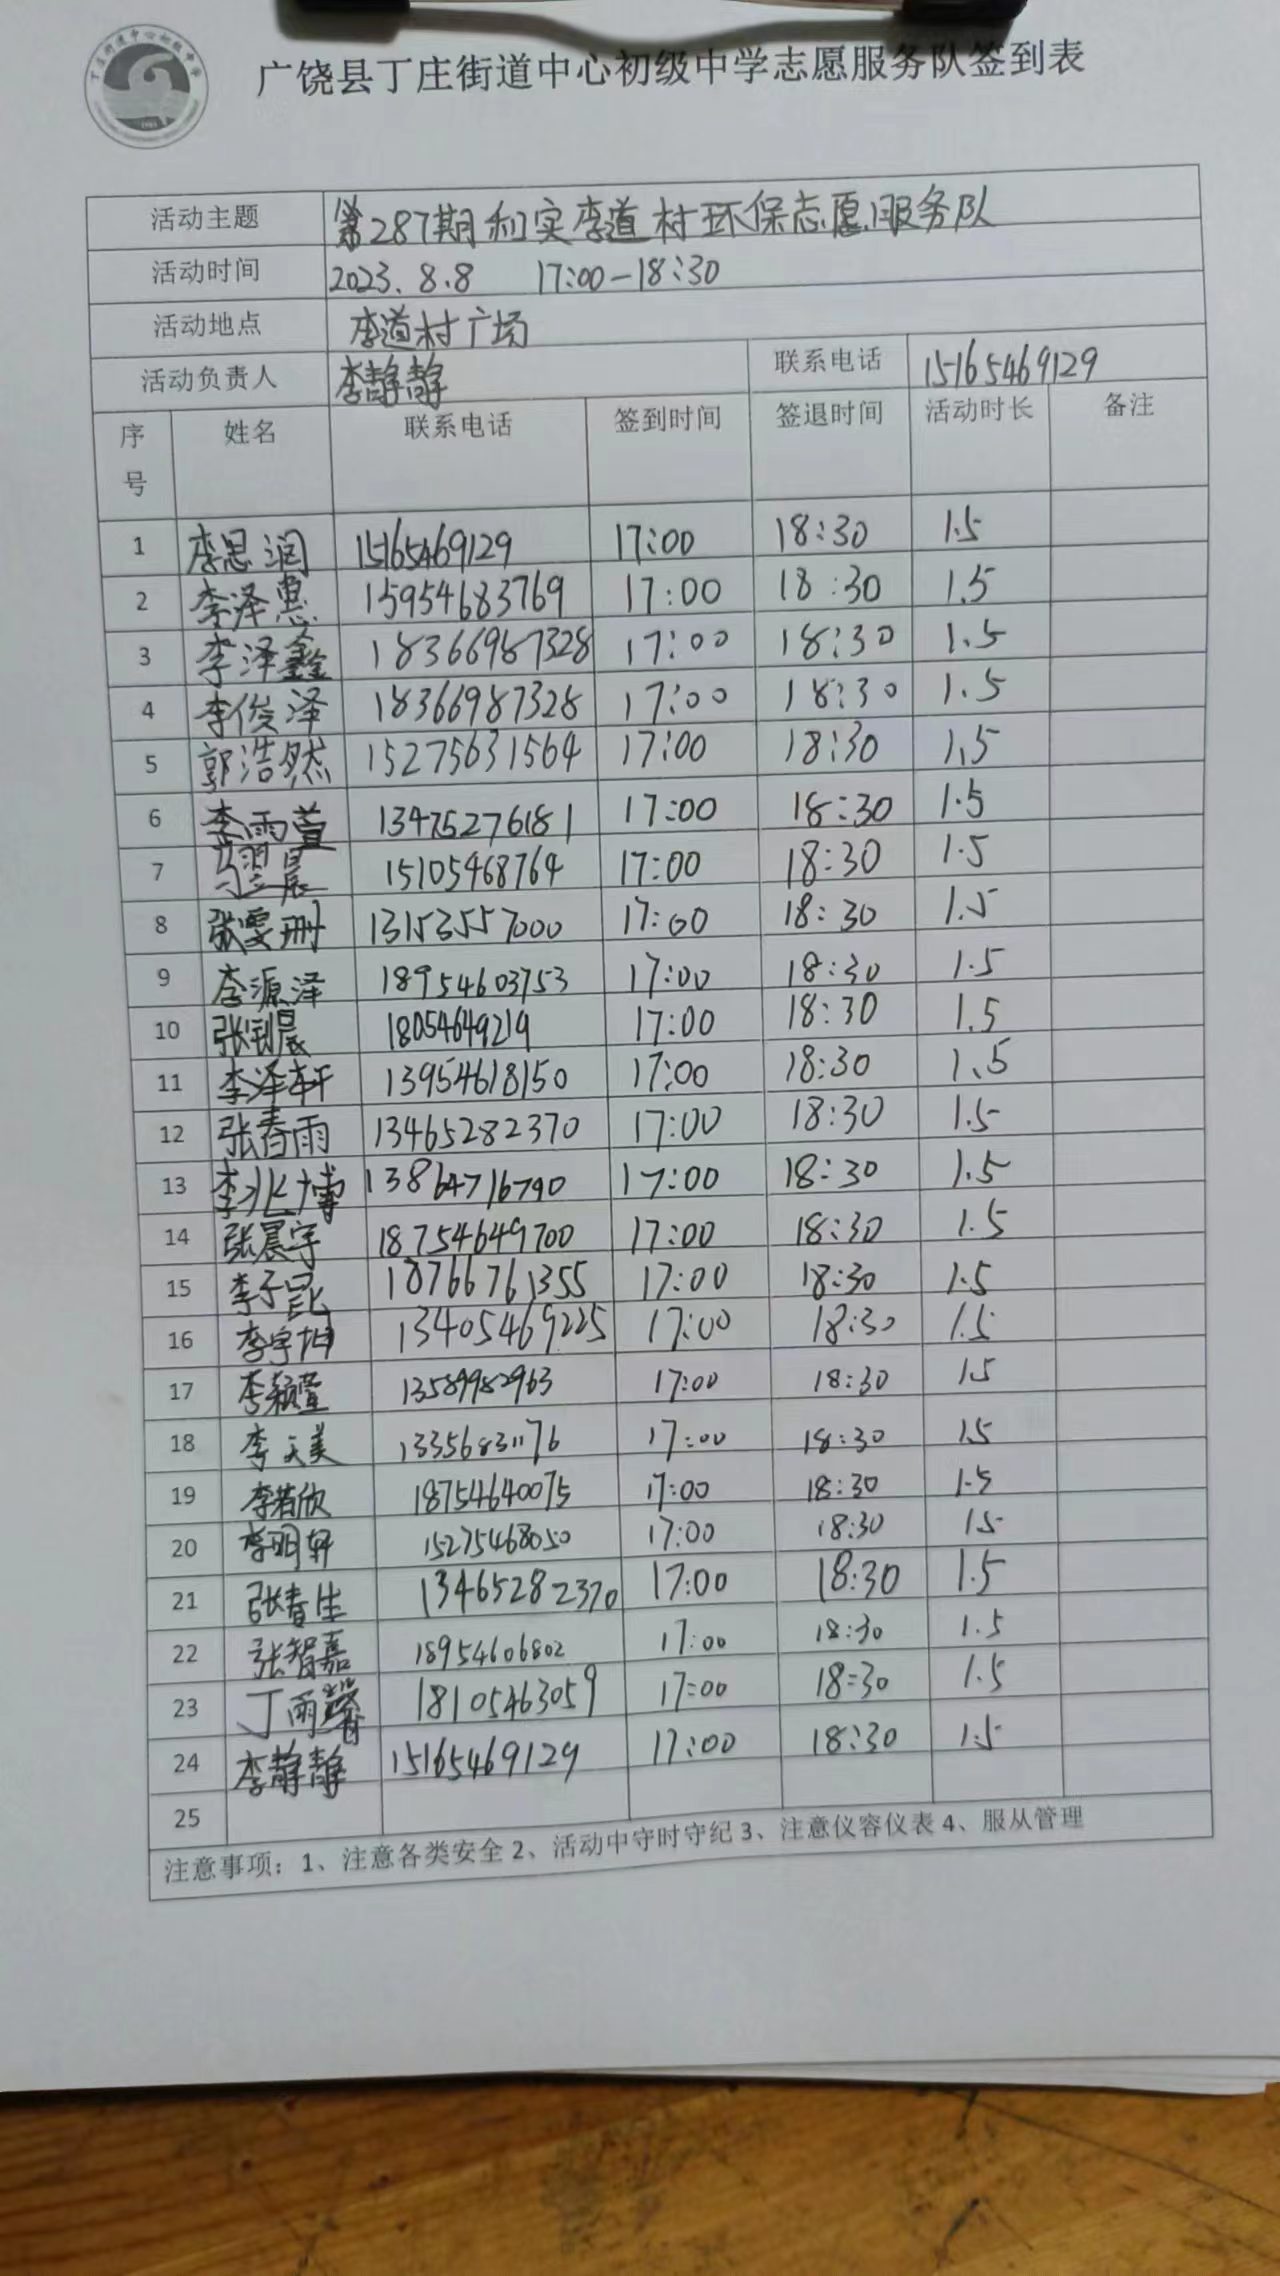 广饶县丁庄街道中心初级中学志愿服务队签到表
活动主题 第287期和实李道村环保志愿服务队
活动时间 2023.8.8 17:00-18:30
活动地点 李道村广场
活动负责人 李静静 联系电话 15165469129
序号 姓名 联系电话 签到时间 签退时间 活动时长 备注
1 李思润 15165469129 17:00 18:30 1.5
2 李泽惠 15954683769 17:00 18:30 1.5
3 李泽鑫 18366987328 17:00 18:30 1.5
4 李俊泽 18366987328 17:00 18:30 1.5
5 郭浩然 15275631564 17:00 18:30 1.5
6 李雨萱 13475276181 17:00 18:30 1.5
7 15105468764 17:00 18:30 1.5
8 张雯珊 13153557000 17:00 18:30 1.5
9 李源泽 18954603753 17:00 18:30 1.5
10 18054649219 17:00 18:30 1.5
11 李泽轩 13954618150 17:00 18:30 1.5
12 张春雨 13465282370 17:00 18:30 1.5
13 李兆博 13864716790 17:00 18:30 1.5
14 张晨宇 18754649700 17:00 18:30 1.5
15 李子昆 18766761355 17:00 18:30 1.5
16 李宇坤 13405469225 17:00 18:30 1.5
17 李颖萱 13589982963 17:00 18:30 1.5
18 李天美 13356831176 17:00 18:30 1.5
19 李若欣 18754640075 17:00 18:30 1.5
20 李明轩 15275468050 17:00 18:30 1.5
21 张春生 13465282370 17:00 18:30 1.5
22 张智嘉 18954606802 17:00 18:30 1.5
23 丁雨馨 18105463059 17:00 18:30 1.5
24 李静静 15165469129 17:00 18:30 1.5
25
注意事项：1、注意各类安全 2、活动中守时守纪 3、注意仪容仪表 4、服从管理